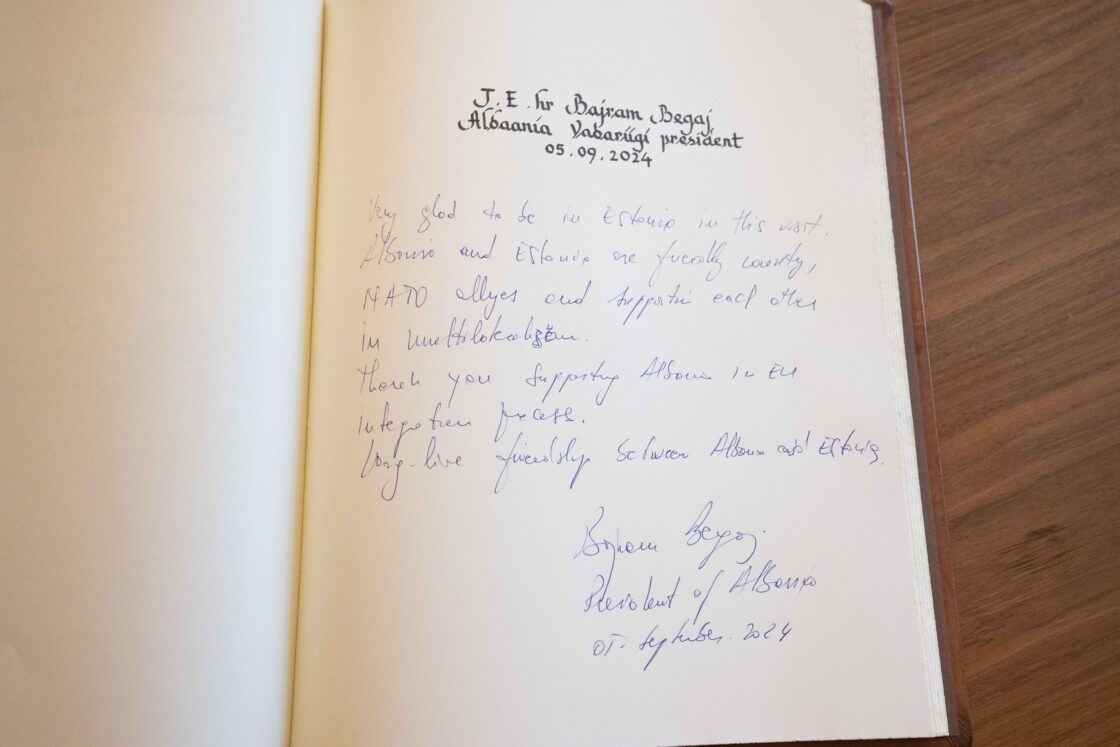 T. E. hr Bajram Begaj
Albaania Vabariigi president
05.09.2024
Very glad to be in Estonia in this visit.
Albania and Estonia are friendly country,
NATO allyes and supportin each other
in
Thank you supporting Albania in EU
integration process.
long live friendship between Albania and Estonia.
Bajram Begaj
President of Albania
05. September. 2024